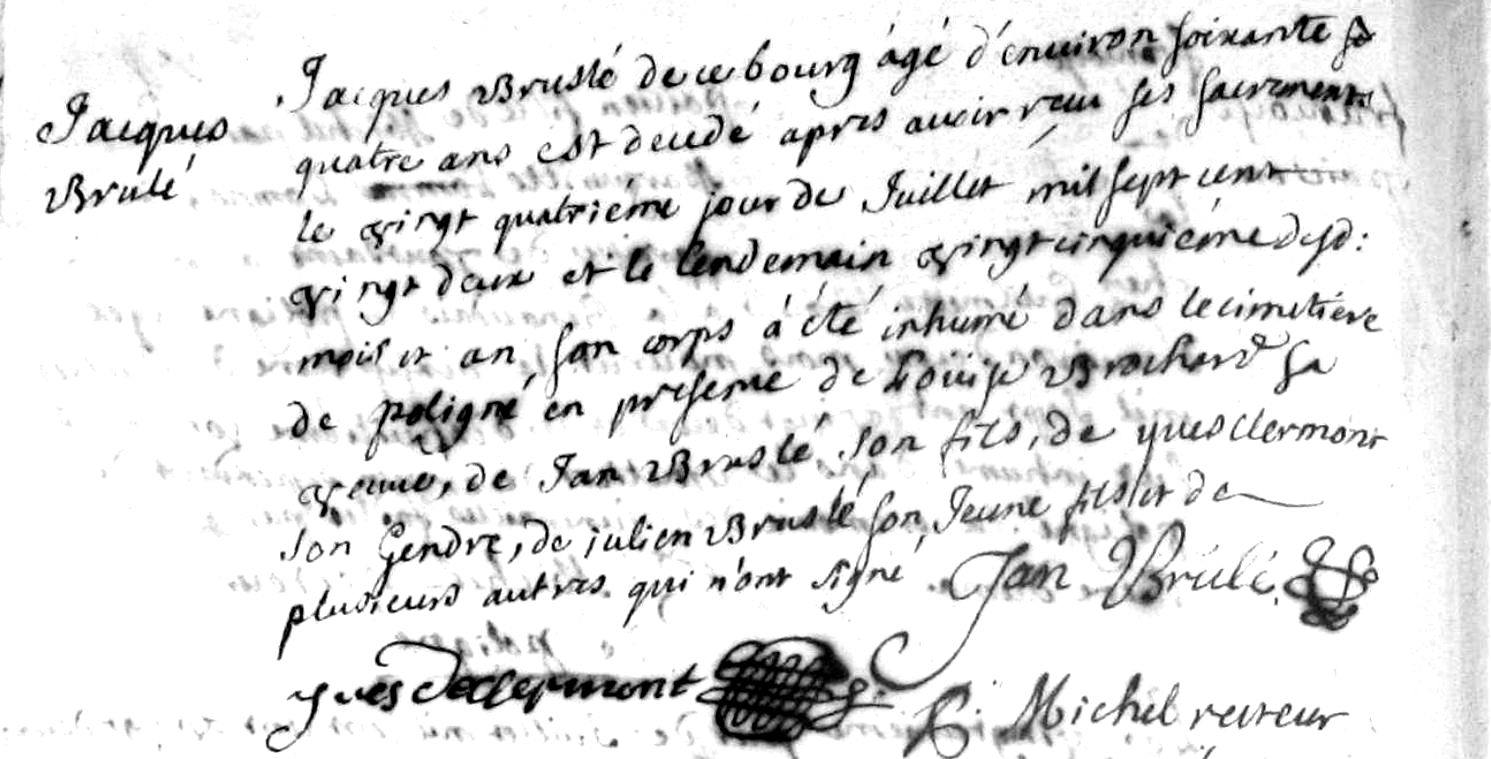 Jacques
Brulé
Jacques Bruslé de ce bourg àgé d'enuiron soixante et
quatre ans est decedé apres auoir receu ses sacrements
le vingt quatriéme jour de Juillet mil sept cent
vingt deux et le lendemain vingt cinquiéme desd:
mois et an son corps à été inhumé dans le cimetiére
de poligné en presence de Loüise Brochard sa
veuue, de Jan Bruslé son fils, de yues clermont
son Gendre, de julien Bruslé son Jeune fils et de
plusieurs autres qui n'ont signé. Jan Brûlé
yues declermont
Michel recteur